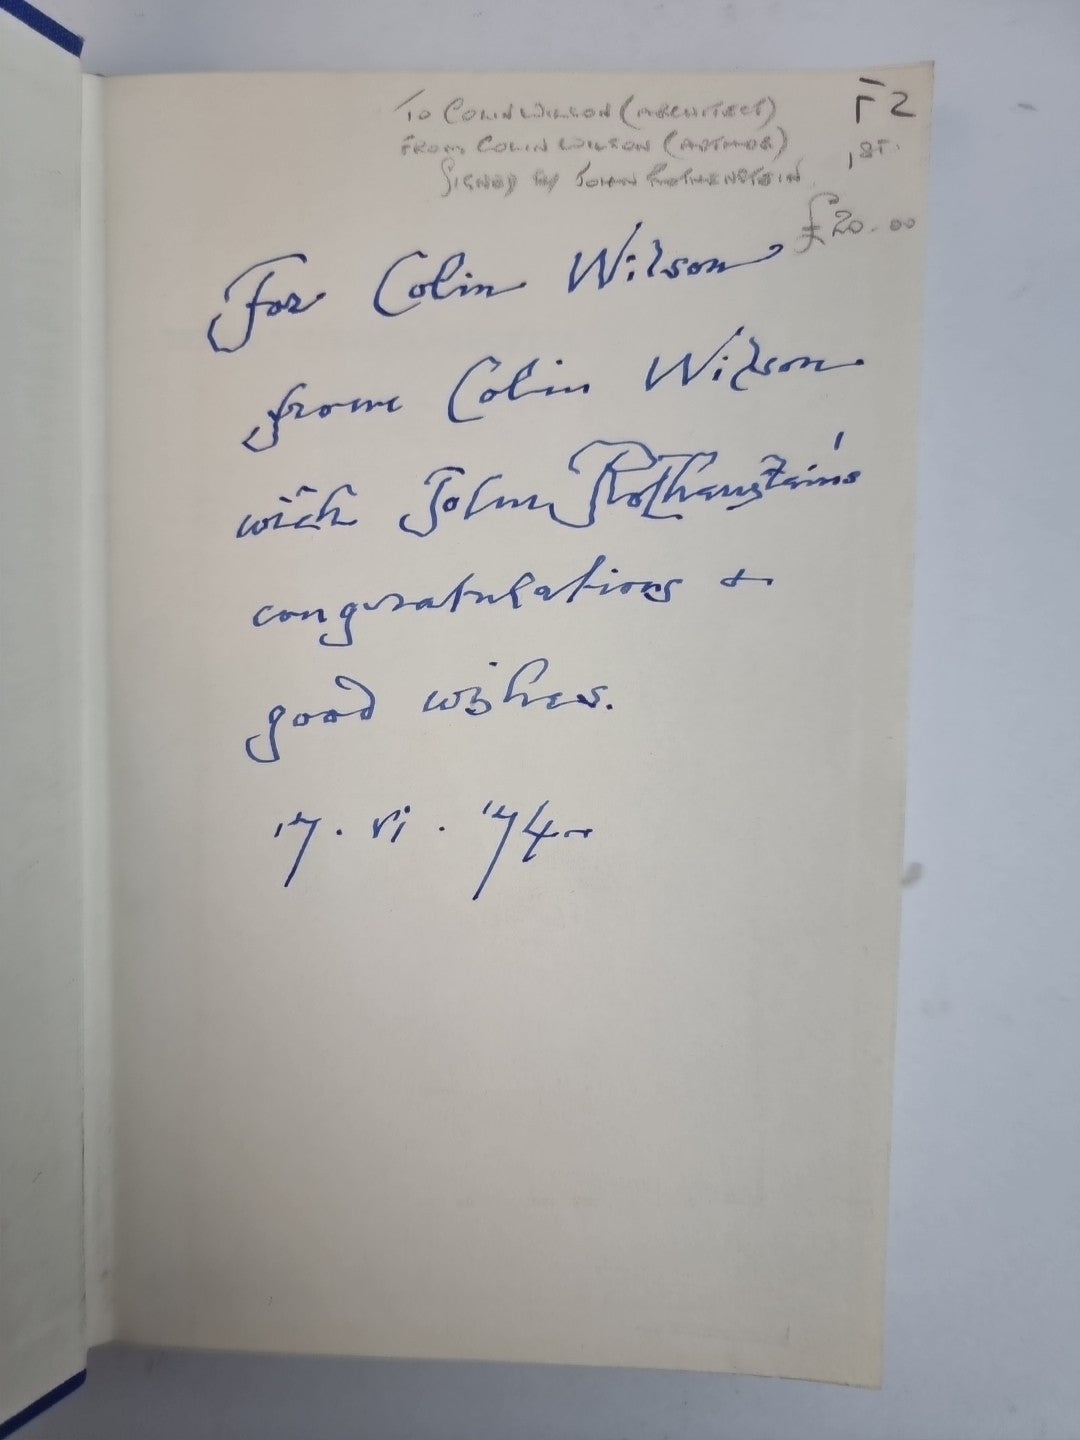 TO COLIN WILSON (ARCHITECT)
FROM COLIN WILSON (AUTHOR)
SIGNED BY JOHN ROTHENSTEIN
F2
1ST.
£20.00
For Colin Wilson
from Colin Wilson
with John Rothenstein's
congratulations &
good wishes.
17. vi. '74